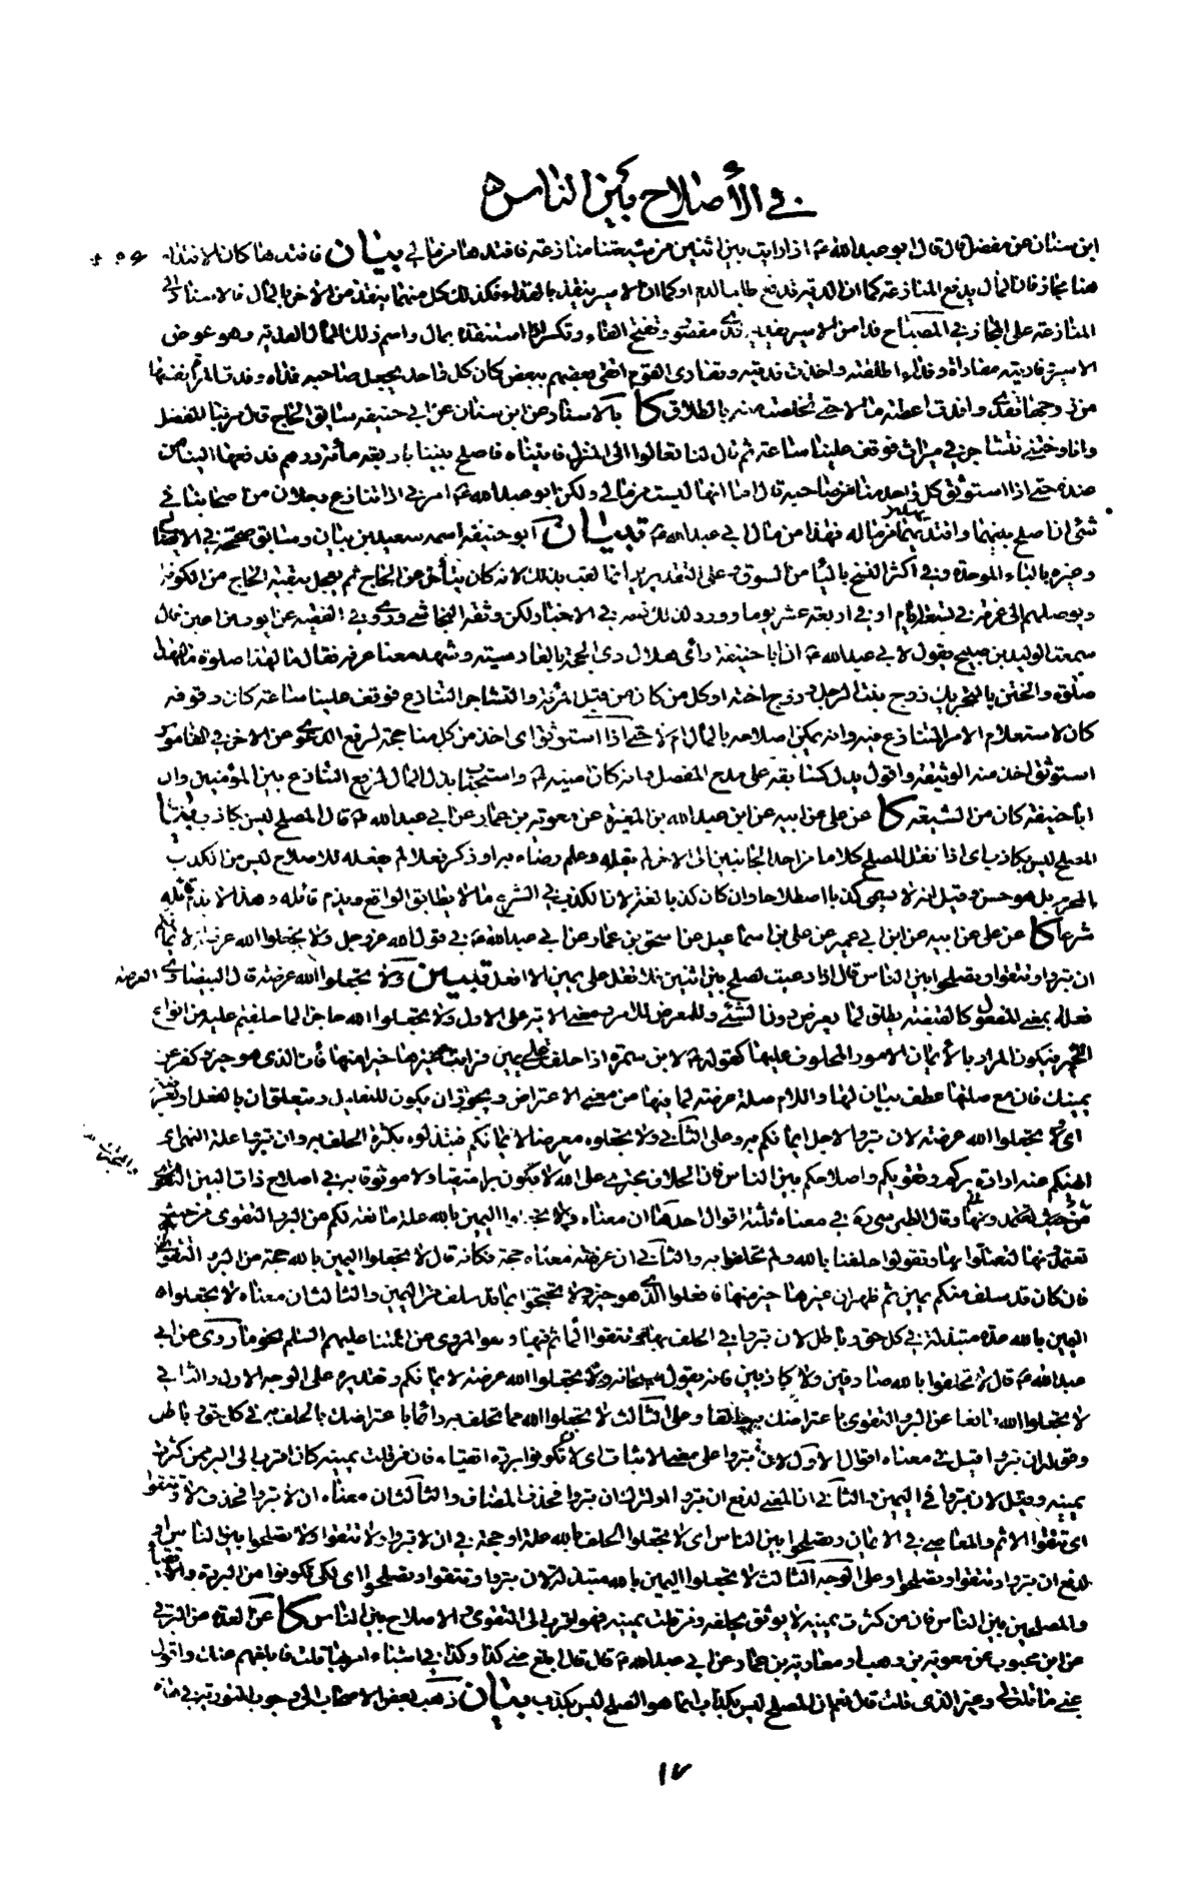 في الأصلاح بين الناس
ابن سنان عن مفضل قال قال ابو عبد الله ع اذا رايت بين اثنين من شيعتنا منازعة فافتدها من مالي بيان فافتدها كان الافتداء
هنا مجاز فان المال يدفع المنازعة كما ان الدية تدفع طالب الدم او كما ان الاسير ينقذ بالفداء فكذلك كل منهما ينقذ من الاخر بالمال فالاسناد الى
المنازعة على المجاز في المصباح فدا من الاسير يفديه فدى مقصور وتفتح الفاء وتكسر اذا استنقذه بمال واسم ذلك المال الفدية وهو عوض
الاسير وفاديته مفاداة وفداء اطلقته واخذت فديته وتفادى القوم اتقى بعضهم ببعض كان كل واحد يجعل صاحبه فداه وفدت المرأة نفسها
من زوجها تفدي وافتدت اعطته مالا حتى تخلصت منه بالطلاق كا بالاسناد عن ابن سنان عن ابي حنيفة سابق الحاج قال مر بنا المفضل
وانا وختني نتشاجر في ميراث فوقف علينا ساعة ثم قال لنا تعالوا الى المنزل فاتيناه فاصلح بيننا باربعمائة درهم فدفعها الينا من
عنده حتى اذا استوثق كل واحد منا من صاحبه قال اما انها ليست من مالي ولكن ابو عبد الله ع امرني اذا تنازع رجلان من اصحابنا في
شئ ان اصلح بينهما وافتديهما من ماله فهذا من مال ابي عبد الله ع تبيان ابو حنيفة اسمه سعيد بن بيان وسابق صححه في الايضاح
وغيره بالباء الموحدة وفي اكثر النسخ بالياء من السوق وعلى التقديرين انما لقب بذلك لانه كان يتأخر عن الحاج ثم يعجل ببقية الحاج من الكوفة
ويوصلهم الى عرفة في تسعة ايام او في اربعة عشر يوما وورد لذلك ذمه في الاخبار ولكن وثقه النجاشي وروى في الفقيه عن ايوب بن اعين قال
سمعت الوليد بن صبيح يقول لابي عبد الله ع ان ابا حنيفة رأى هلال ذى الحجة بالقادسية وشهد معنا عرفة فقال ما لهذا صلوة ما لهذا
صلوة والختن بالتحريك زوج بنت الرجل وزوج اخته او كل من كان من قبل المرأة والتشاجر التنازع فوقف علينا ساعة كان وقوفه
كان لاستعلام الامر المتنازع فيه وانه يمكن اصلاحه بالمال ام لا حتى اذا استوثق اى اخذ من كل منا حجة لرفع الدعوى عن الاخر في القاموس
استوثق اخذ منه الوثيقة واقول يدل كسابقه على مدح المفضل وانه كان امينه ع واستحباب بذل المال لرفع التنازع بين المؤمنين وان
ابا حنيفة كان من الشيعة كا عن علي عن ابيه عن ابن عبد الله بن المغيرة عن معوية بن عمار عن ابي عبد الله ع قال المصلح ليس بكاذب بيان
المصلح ليس بكاذب اى اذا نقل المصلح كلاما من احد الجانبين الى الاخر لم يقله وعلم رضاه به او ذكر فعلا لم يفعله للاصلاح ليس من الكذب
المحرم بل هو حسن وقيل انه لا يسمى كذبا اصطلاحا وان كان كذبا لغة لان الكذب في الشرع ما لا يطابق الواقع ويذم قائله وهذا لا يذم قائله
شرعا كا عن علي عن ابيه عن ابن ابي عمير عن علي بن اسماعيل عن اسحق بن عمار عن ابي عبد الله ع في قول الله عز وجل ولا تجعلوا الله عرضة لايمانكم
ان تبروا وتتقوا وتصلحوا بين الناس قال اذا دعيت لصلح بين اثنين فلا تقل علي يمين الا افعل تبيين ولا تجعلوا الله عرضة قال البيضاوى العرضة
فعلة بمعنى المفعول كالقبضة يطلق لما يعرض دون الشئ وللمعرض للامر ومعنى الاية على الاول ولا تجعلوا الله حاجزا لما حلفتم عليه من انواع
الخير فيكون المراد بالأيمان الامور المحلوف عليها كقوله ع لابن سمرة اذا حلفت على يمين فرايت غيرها خيرا منها فأت الذى هو خير وكفر عن
يمينك فان مع صلتها عطف بيان لها واللام صلة عرضة لما فيها من معنى الاعتراض ويجوز ان يكون للتعليل ويتعلق ان بالفعل او بعرضة
اى ولا تجعلوا الله عرضة لان تبروا لاجل ايمانكم به وعلى الثاني ولا تجعلوه معرضا لايمانكم فتبتذلوه بكثرة الحلف به وان تبروا علة النهى اى
انهيكم عنه ارادة بركم وتقويكم واصلاحكم بين الناس فان الحلاف مجترئ على الله لا يكون برا متقيا ولا موثوقا به في اصلاح ذات البين
وقال الطبرسي ره في معناه ثلثة اقوال احدها ان معناه ولا تجعلوا اليمين بالله علة مانعة لكم من البر والتقوى من حيث
تعتمدونها لتعتلوا بها وتقولوا حلفنا بالله ولم تحلفوا به والثاني ان عرضة معناه حجة فكانه قال لا تجعلوا اليمين بالله حجة من البر والتقوى
فان كان قد سلف منكم يمين ثم ظهر ان غيرها خير منها فافعلوا الذى هو خير ولا تحتجوا بما قد سلف من اليمين والثالث ان معناه لا تجعلوا
اليمين بالله عدة مبتذلة في كل حق وباطل لان تبروا في الحلف بها وتتقوا المأثم فيها وهو المروى عن ائمتنا عليهم السلم نحو ما روى عن ابي
عبد الله ع قال لا تحلفوا بالله صادقين ولا كاذبين فانه يقول سبحانه ولا تجعلوا الله عرضة لايمانكم وتقديره على الوجه الاول والثاني
لا تجعلوا الله مانعا عن البر والتقوى باعتراضك به حالفا وعلى الثالث لا تجعلوا الله مما تحلف به دائما باعتراضك بالحلف به في كل حق وباطل
وقوله ان تبروا قيل في معناه اقوال الاول لان تبروا على معنى الاثبات اى لان تكونوا بررة اتقياء فان من قلت يمينه كان اقرب الى البر ممن كثرت
يمينه وقيل لان تبروا في اليمين والثاني ان المعنى لدفع ان تبروا او لترك ان تبروا فحذف المضاف والثالث ان معناه ان لا تبروا فحذف لا وتتقوا
اى تتقوا الاثم والمعاصي في الايمان وتصلحوا بين الناس اى لا تجعلوا الحلف بالله علة او حجة في ان لا تبروا ولا تتقوا ولا تصلحوا بين الناس او
لدفع ان تبروا وتتقوا وتصلحوا وعلى الوجه الثالث لا تجعلوا اليمين بالله مبتذلة لان تبروا وتتقوا وتصلحوا اى لكي تكونوا من البررة والاتقياء
والمصلحين بين الناس فان من كثرت يمينه لا يوثق بحلفه ومن قلت يمينه فهو اقرب الى التقوى والاصلاح بين الناس كا عن العدة عن البرقي
عن ابن محبوب عن معوية بن وهب او معاوية بن عمار عن ابي عبد الله ع قال قال ابلغ عني كذا وكذا في اشياء امر بها قلت فابلغهم عنك واقول
عني ما قلت لي وغير الذى قلت قال نعم ان المصلح ليس بكذاب انما هو الصلح ليس بكذب بيان ذهب بعض الاصحاب الى وجوب التورية في هذه
١٧